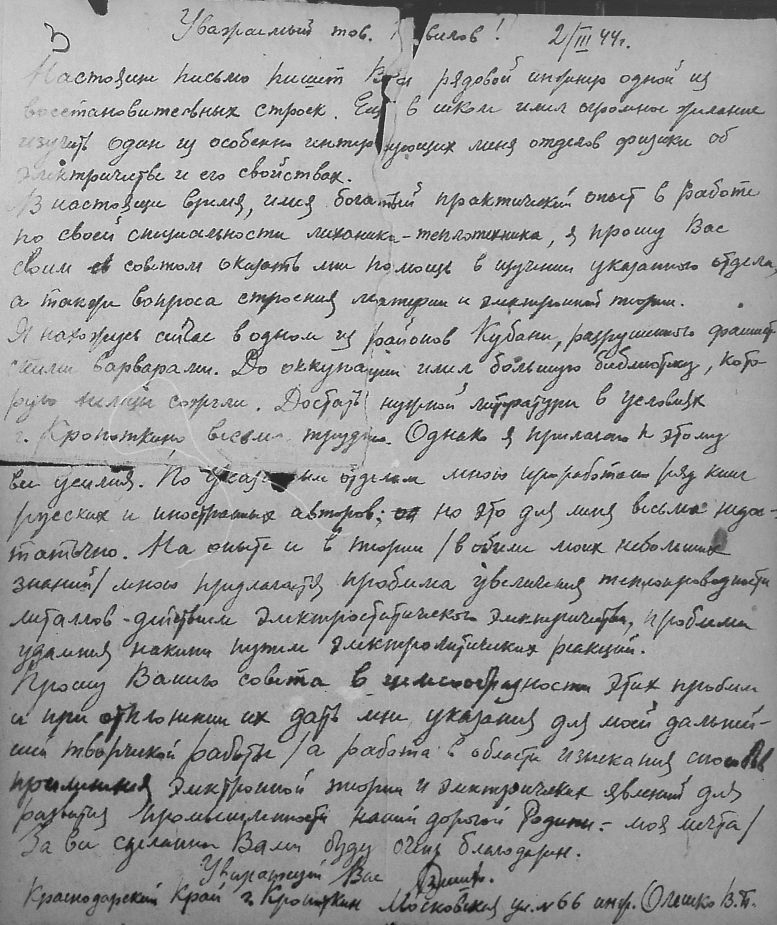 Уважаемый тов. вилов! 2/III 44г.
Настоящее письмо пишет Вам рядовой инженер одной из
восстановительных строек. Ещё в школе имел огромное желание
изучить один из особенно интересующих меня отделов физики об
электричестве и его свойствах.
В настоящее время, имея богатый практический опыт в работе
по своей специальности механика-теплотехника, я прошу Вас
своим советом оказать мне помощь в изучении указанного отдела,
а также вопроса строения материи и электронной теории.
Я нахожусь сейчас в одном из районов Кубани, разрушенного фашист-
скими варварами. До оккупации имел большую библиотеку, кото-
рую немцы сожгли. Достать нужной литературы в условиях
г. Кропоткина весьма трудно. Однако я прилагаю к этому
все усилия. По указанным отделам мною проработано ряд книг
русских и иностранных авторов; но это для меня весьма недос-
таточно. На опыте и в теории /в объеме моих небольших
знаний/ мною предлагается проблема увеличения теплопроводности
металлов - действием электростатического электричества, проблема
удаления накипи путем электролитических реакций.
Прошу Вашего совета в целесообразности этих проблем
и при отклонении их дать мне указания для моей дальней-
шей творческой работы /а работа в области изыскания способов
применения электронной теории и электрических явлений для
развития промышленности нашей дорогой Родины - моя мечта/
За все сделанное Вами буду очень благодарен.
Уважающий Вас
Краснодарский Край г. Кропоткин Московская ул. № 66 инж. Олешко В.П.